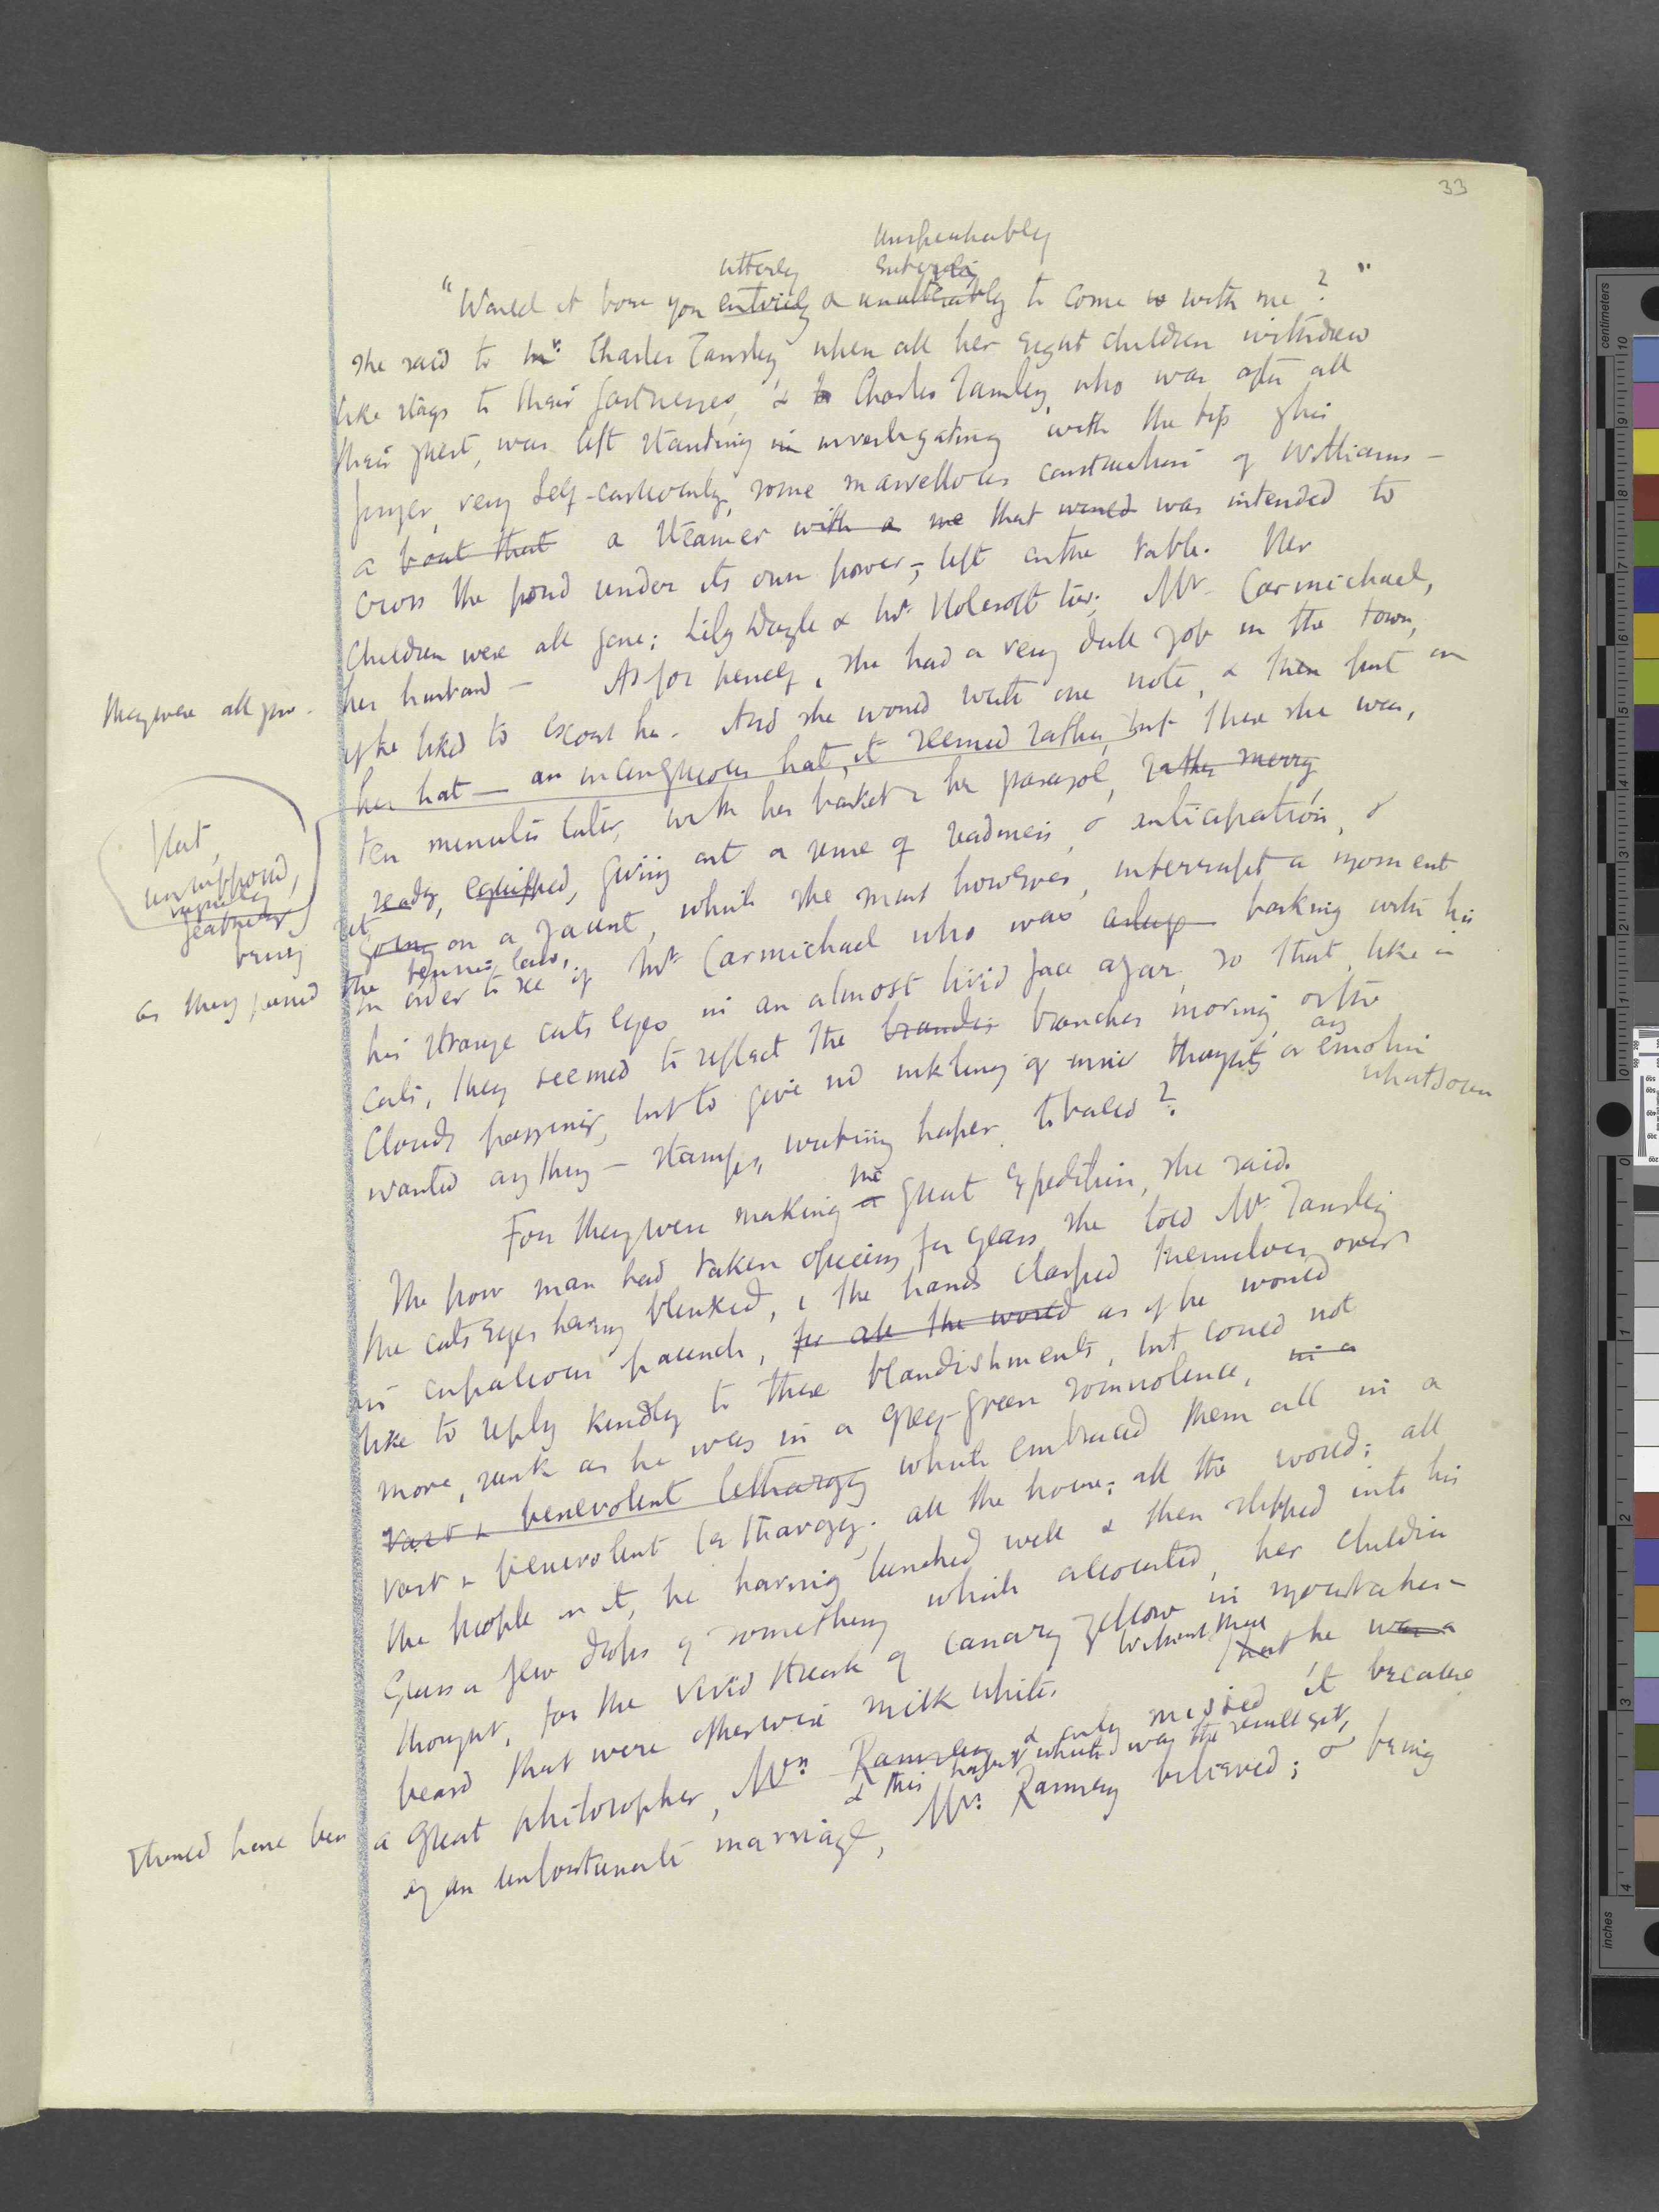 33
unspeakably
utterly entirely
"Would it bore you entirely & unutterably to come with me?"
she said to Mr. Charles Tansley, when all her eight children withdrew
like stags to their fastnesses, & Charles Tansley, who was after all
their guest, was left standing in investigating with the tip of his
finger, very self-consciously, some marvellous construction of Williams -
a boat that a steamer with a me that would was intended to
cross the pond under its own power, left on the table. Her
children were all gone; Lily & Mr. too; Mr. Carmichael,
they were all gone. her husband - As for herself, she had a very dull job in the town,
if he liked to escort her. And she would write one note, & then put on
her hat - an incongruous hat, it seemed rather, but there she was,
ten minutes later, with her basket & her parasol, rather merry,
flat,
ready, equipped, giving out a sense of readiness, & anticipation, &
being
going on a jaunt, which she must however, interrupt a moment
as they passed the tennis lawn,
in order to see if Mr. Carmichael who was asleep basking with his
his strange cats eyes in an almost livid face ajar, so that, like a
cats, they seemed to reflect the branches branches moving, or the
clouds passing, but to give no inkling of inner thoughts or any emotion whatsoever
wanted anything - stamps, writing paper, tobacco?
For they were making a the great expedition, she said.
The poor man had taken opium for years she told Mr. Tansley
the cats eyes having blinked, & the hands clasped themselves over
his capacious paunch, for all the world as if he would
like to reply kindly to these blandishments, but could not
more, sunk as he was in a grey-green somnolence, in a
vast & benevolent lethargy which embraced them all in a
vast & benevolent lethargy; all the house; all the world; all
the people in it, he having lunched well & then slipped into his
glass a few drops of something which accounted, her children
thought, for the vivid streak of canary yellow in moustache &
beard that were otherwise milk white. Without that he was a
should have been a great philosopher, Mrs. Ramsay & only missed it because
& this which was the result
of an unfortunate marriage, Mrs. Ramsay believed; & being